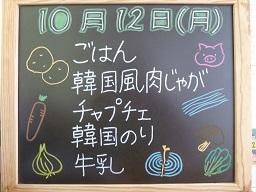 10月12日(月)
ごはん
韓国風肉じゃが
チャプチェ
韓国のり
牛乳